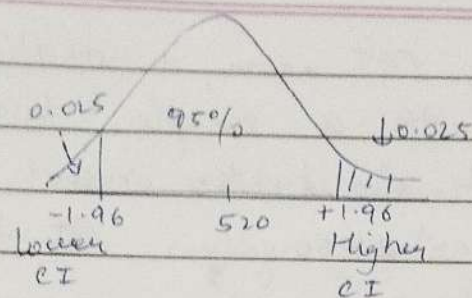 0.025 95% 0.025
-1.96 520 +1.96
Lower Higher
CI CI